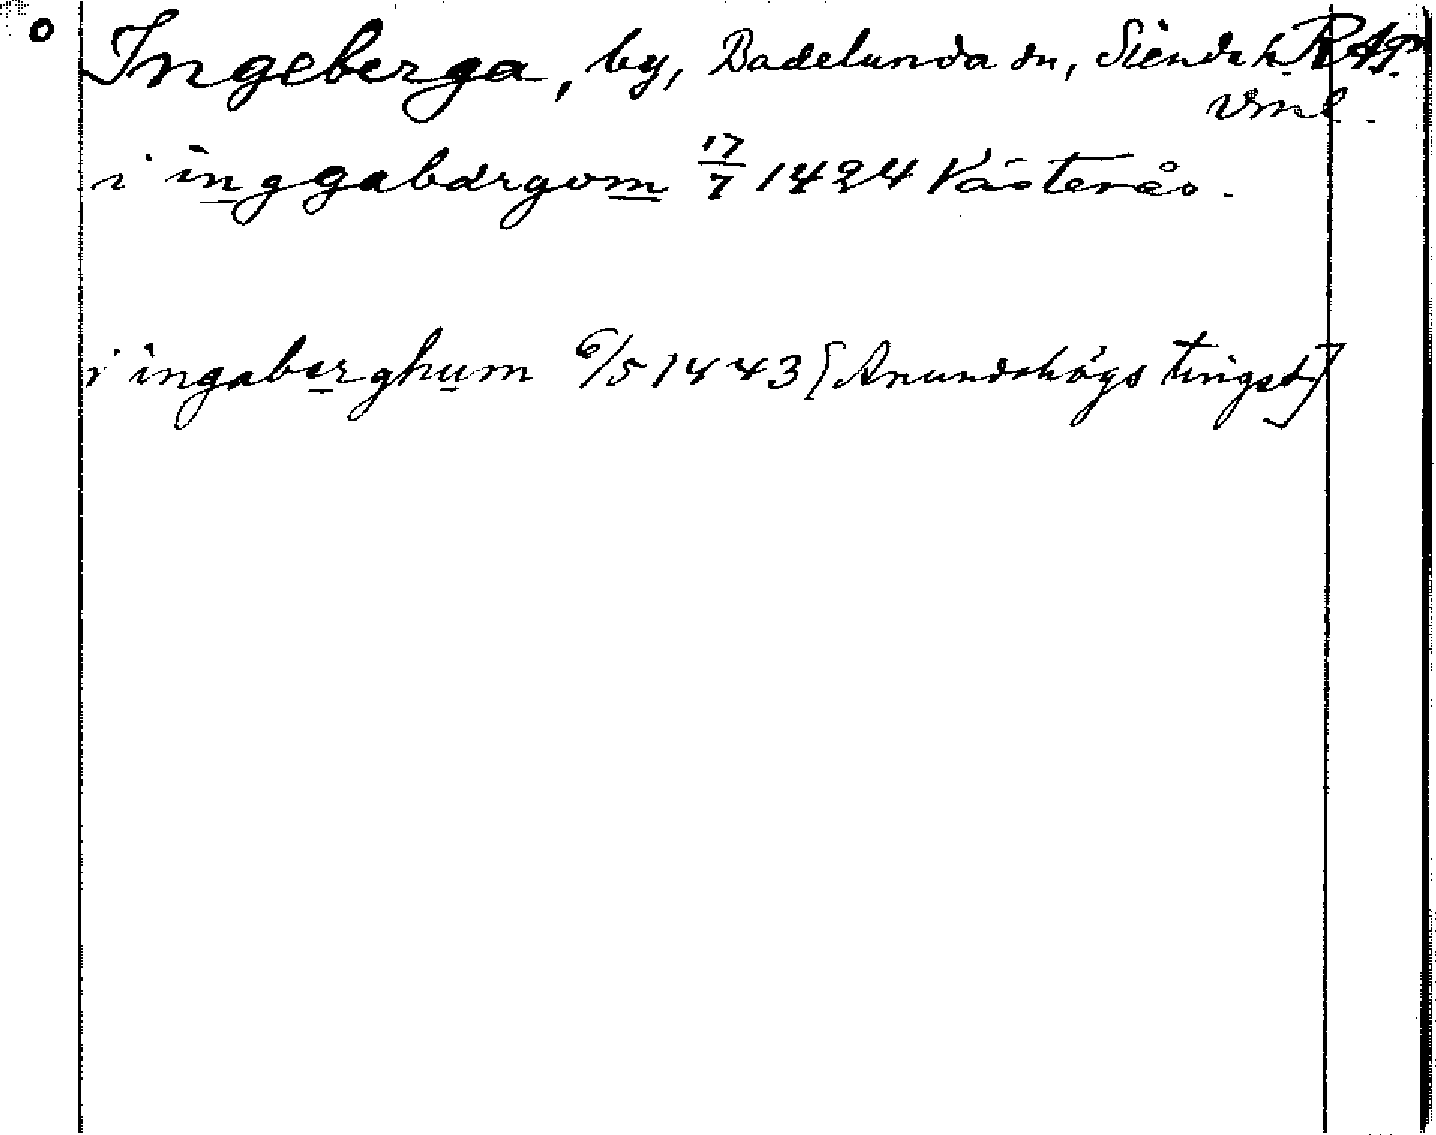 Ingeberga, by, Badelunda sn, Siende h. RAp.
Vml.
i inggabärgom 17/7 1424 Västerås.
i ingaberghum 6/5 1443 [Anundshögs tingst.]